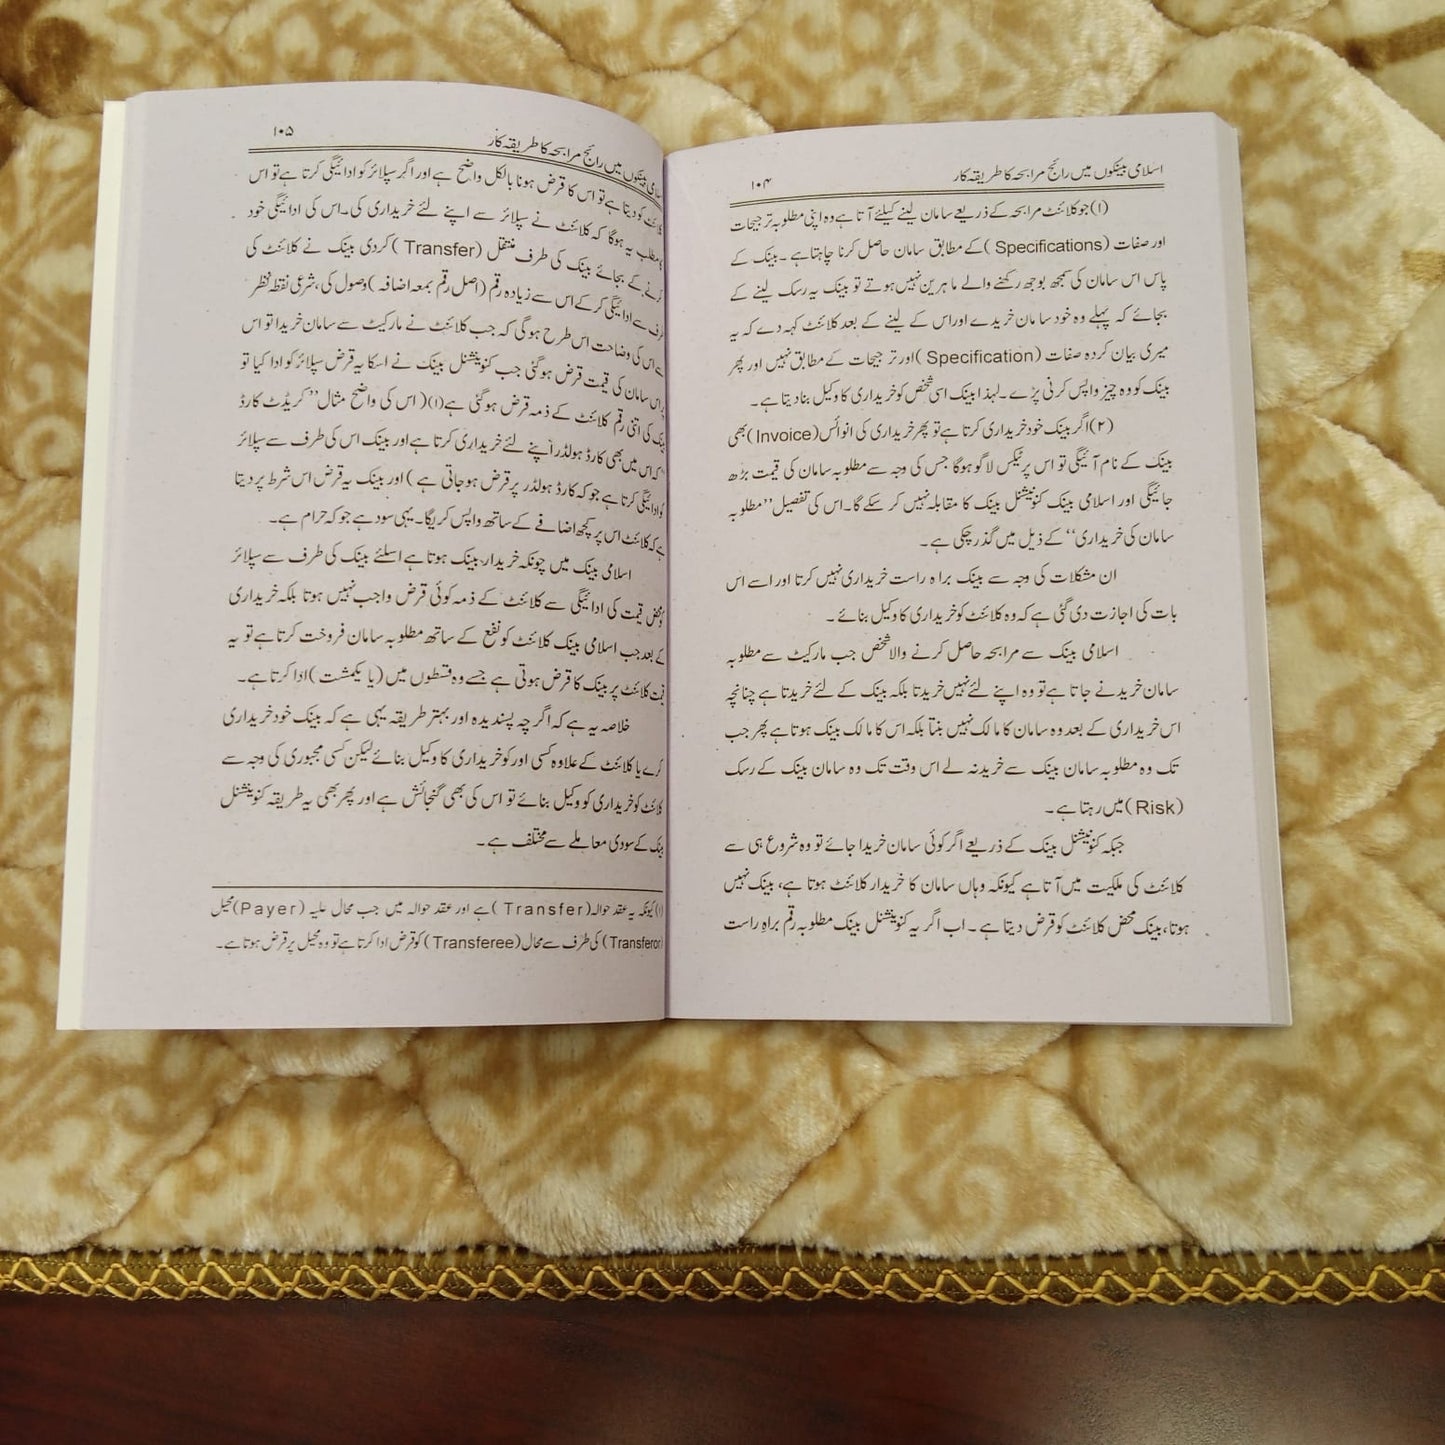 اسلامی بینکوں میں رائج مرابحہ کا طریقہ کار
۱۰۴
(۱) جو کلائنٹ مرابحہ کے ذریعے سامان لینے کیلئے آتا ہے وہ اپنی مطلوبہ ترجیحات
اور صفات (Specifications) کے مطابق سامان حاصل کرنا چاہتا ہے۔ بینک کے
پاس اس سامان کی سمجھ بوجھ رکھنے والے ماہرین نہیں ہوتے تو بینک یہ رسک لینے کے
بجائے کہ پہلے وہ خود سامان خریدے اور اس کے لینے کے بعد کلائنٹ کہہ دے کہ یہ
میری بیان کردہ صفات (Specification) اور ترجیحات کے مطابق نہیں اور پھر
بینک کو وہ چیز واپس کرنی پڑے۔ لہذا بینک اسی شخص کو خریداری کا وکیل بنا دیتا ہے۔
(۲) اگر بینک خود خریداری کرتا ہے تو پھر خریداری کی انوائس (Invoice) بھی
بینک کے نام آئیگی تو اس پر ٹیکس لاگو ہوگا جس کی وجہ سے مطلوبہ سامان کی قیمت بڑھ
جائیگی اور اسلامی بینک کنونیشنل بینک کا مقابلہ نہیں کر سکے گا۔ اس کی تفصیل ”مطلوبہ
سامان کی خریداری“ کے ذیل میں گذر چکی ہے۔
ان مشکلات کی وجہ سے بینک براہ راست خریداری نہیں کرتا اور اسے اس
بات کی اجازت دی گئی ہے کہ وہ کلائنٹ کو خریداری کا وکیل بنائے۔
اسلامی بینک سے مرابحہ حاصل کرنے والا شخص جب مارکیٹ سے مطلوبہ
سامان خریدنے جاتا ہے تو وہ اپنے لئے نہیں خریدتا بلکہ بینک کے لئے خریدتا ہے چنانچہ
اس خریداری کے بعد وہ سامان کا مالک نہیں بنتا بلکہ اس کا مالک بینک ہوتا ہے پھر جب
تک وہ مطلوبہ سامان بینک سے خرید نہ لے اس وقت تک وہ سامان بینک کے رسک
(Risk) میں رہتا ہے۔
جبکہ کنونیشنل بینک کے ذریعے اگر کوئی سامان خریدا جائے تو وہ شروع ہی سے
کلائنٹ کی ملکیت میں آتا ہے کیونکہ وہاں سامان کا خریدار کلائنٹ ہوتا ہے، بینک نہیں
ہوتا، بینک محض کلائنٹ کو قرض دیتا ہے۔ اب اگر یہ کنونیشنل بینک مطلوبہ رقم براہِ راست
اسلامی بینکوں میں رائج مرابحہ کا طریقہ کار
۱۰۵
کلائنٹ کو دیتا ہے تو اس کا قرض ہونا بالکل واضح ہے اور اگر سپلائر کو ادائیگی کرتا ہے تو اس
کا مطلب یہ ہوگا کہ کلائنٹ نے سپلائر سے اپنے لئے خریداری کی۔ اس کی ادائیگی خود
کرنے کے بجائے بینک کی طرف منتقل (Transfer) کردی بینک نے کلائنٹ کی
طرف سے ادائیگی کر کے اس سے زیادہ رقم (اصل رقم بمعہ اضافہ) وصول کی، شرعی نقطہ نظر
سے اس کی وضاحت اس طرح ہوگی کہ جب کلائنٹ نے مارکیٹ سے سامان خریدا تو اس
پر اس سامان کی قیمت قرض ہوگئی جب کنونیشنل بینک نے اسکا یہ قرض سپلائر کو ادا کیا تو
بینک کی اتنی رقم کلائنٹ کے ذمہ قرض ہوگئی ہے (۱) (اس کی واضح مثال ”کریڈٹ کارڈ
کہ اس میں بھی کارڈ ہولڈر اپنے لئے خریداری کرتا ہے اور بینک اس کی طرف سے سپلائر
کو ادائیگی کرتا ہے جو کہ کارڈ ہولڈر پر قرض ہوجاتی ہے) اور بینک یہ قرض اس شرط پر دیتا
ہے کہ کلائنٹ اس پر کچھ اضافے کے ساتھ واپس کریگا۔ یہی سود ہے جو کہ حرام ہے۔
اسلامی بینک میں چونکہ خریدار بینک ہوتا ہے اسلئے بینک کی طرف سے سپلائر
کو محض قیمت کی ادائیگی سے کلائنٹ کے ذمہ کوئی قرض واجب نہیں ہوتا بلکہ خریداری
کے بعد جب اسلامی بینک کلائنٹ کو نفع کے ساتھ مطلوبہ سامان فروخت کرتا ہے تو یہ
قیمت کلائنٹ پر بینک کا قرض ہوتی ہے جسے وہ قسطوں میں (یا یکمشت) ادا کرتا ہے۔
خلاصہ یہ ہے کہ اگرچہ پسندیدہ اور بہتر طریقہ یہی ہے کہ بینک خود خریداری
کرے یا کلائنٹ کے علاوہ کسی اور کو خریداری کا وکیل بنائے لیکن کسی مجبوری کی وجہ سے
کلائنٹ کو خریداری کو وکیل بنائے تو اس کی بھی گنجائش ہے اور پھر بھی یہ طریقہ کنونیشنل
بینک کے سودی معاملے سے مختلف ہے۔
(۱) کیونکہ یہ عقد حوالہ (Transfer) ہے اور عقد حوالہ میں جب محال علیہ (Payer) محیل
(Transferor) کی طرف سے محال (Transferee) کو قرض ادا کرتا ہے تو وہ محیل پر قرض ہوتا ہے۔